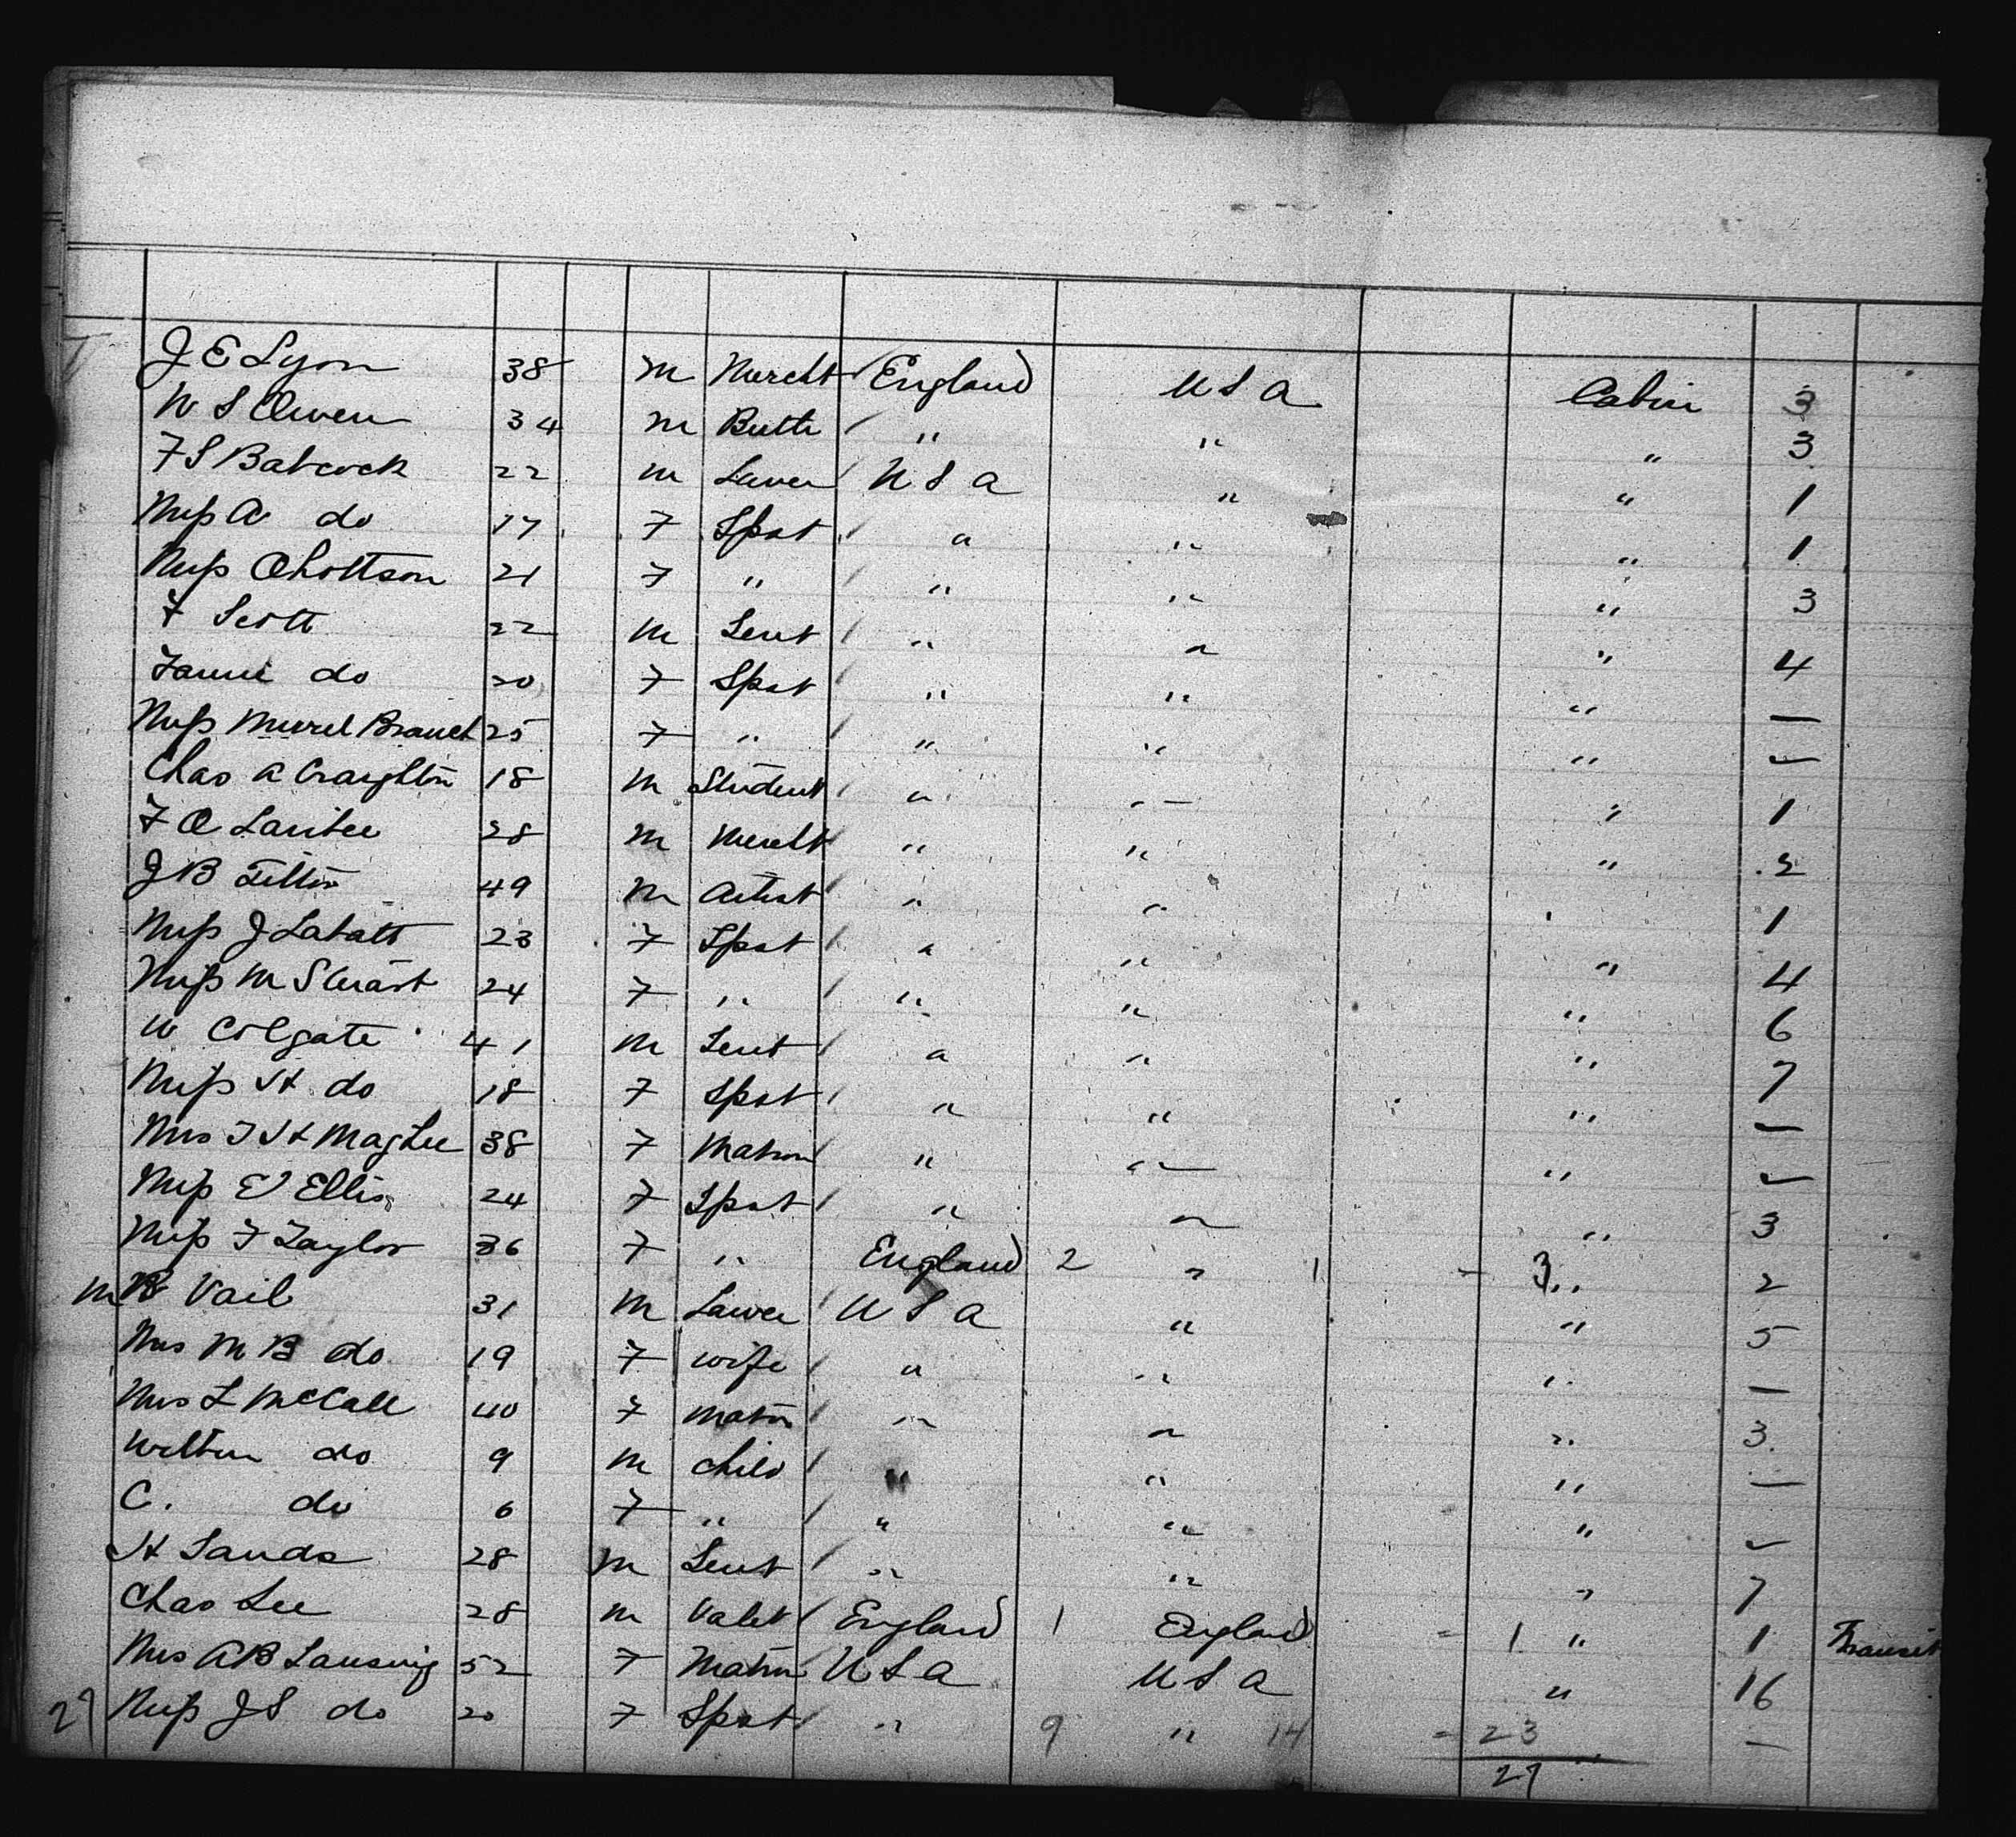 J E Lyon 38 m Mercht England U S A Cabin 3
W S Owen 34 m Butlr " " " 3
F S Babcock 22 m Lawer U S A " " 1
Miss A do 17 F Spst " " " 1
Miss 21 F " " " " 3
F Scott 22 m Gent " " " 4
Fannie do 20 F Spst " " " —
Miss Murel Branch 25 F " " " " —
Chas A Craighton 18 m Student " " " 1
F O Laribee 28 m Mercht " " " 2
J B Tilton 49 m Artist " " " 1
Miss J Labatt 23 F Spst " " " 4
Miss M Stuart 24 F " " " " 6
W Colgate 41 m Gent " " " 7
Miss H do 18 F Spst " " " —
Mrs J H MagLee 38 F Matron " " " —
Miss E Ellis 24 F Spst " " " 3
Miss F Taylor 36 F " England 2 " 1 - 3 " 2
M B Vail 31 m Lawer U S A " " 5
Mrs M B do 19 F wife " " " —
Mrs L McCall 40 F Matrn " " " 3
Wilton do 9 m child " " " —
C. do 6 F " " " " —
H Sands 28 m Gent " " " 7
Chas Lee 28 m Valet England 1 England = 1 " 1 Transit
Mrs A B Lansing 52 F Matrn U S A U S A " 16
27 Miss J S do 20 F Spst " 9 " 14 = 23 " —
27